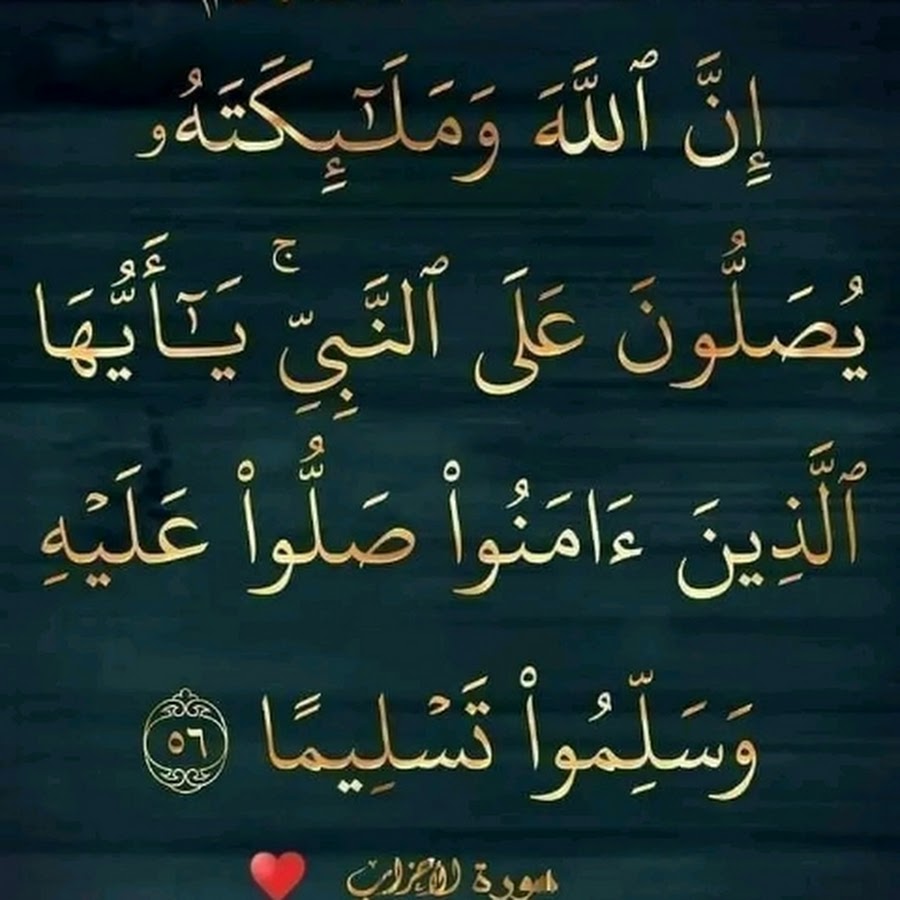 إِنَّ ٱللَّهَ وَمَلَـٰٓئِكَتَهُۥ
يُصَلُّونَ عَلَى ٱلنَّبِىِّ ۚ يَـٰٓأَيُّهَا
ٱلَّذِينَ ءَامَنُوا۟ صَلُّوا۟ عَلَيْهِ
وَسَلِّمُوا۟ تَسْلِيمًا ٥٦
سورة الأحزاب